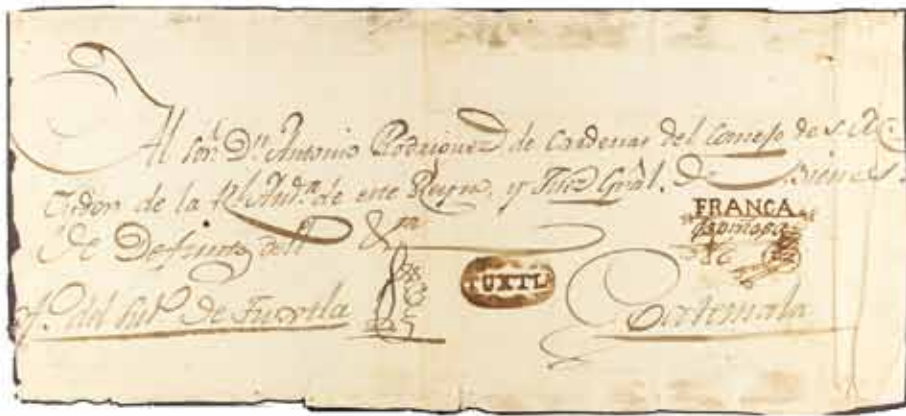 Al Sor. Dn. Antonio Rodriguez de Cardenas del Consejo de S. M.
Oydor de la Rl. Auda. de este Reyno, y Juez Gral. de Bienes
de Difuntos de el &a.
FRANCA
Espinosa
TUXTLA
del Sub. de Tuxtla
Goatemala